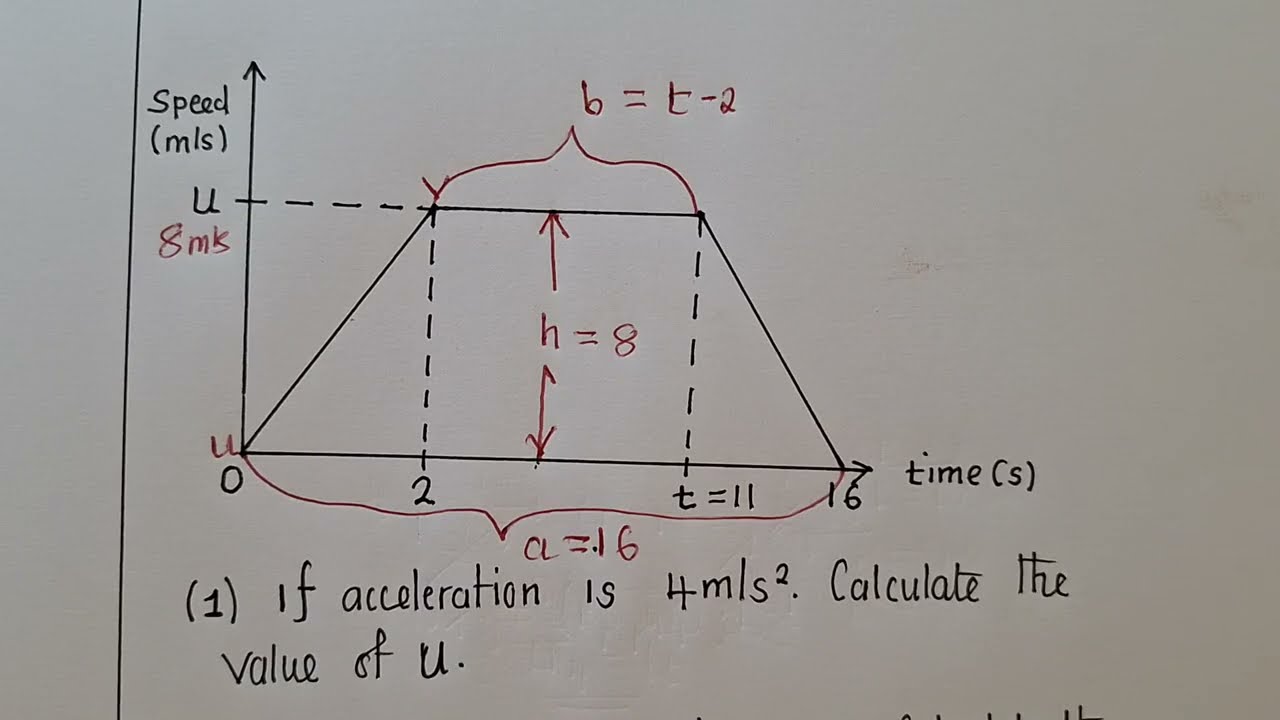 b = t-2
Speed
(m/s)
u
8m/s
h = 8
u
0
2
t = 11
16
time (s)
a = 16
(1) If acceleration is 4m/s². Calculate the
value of u.